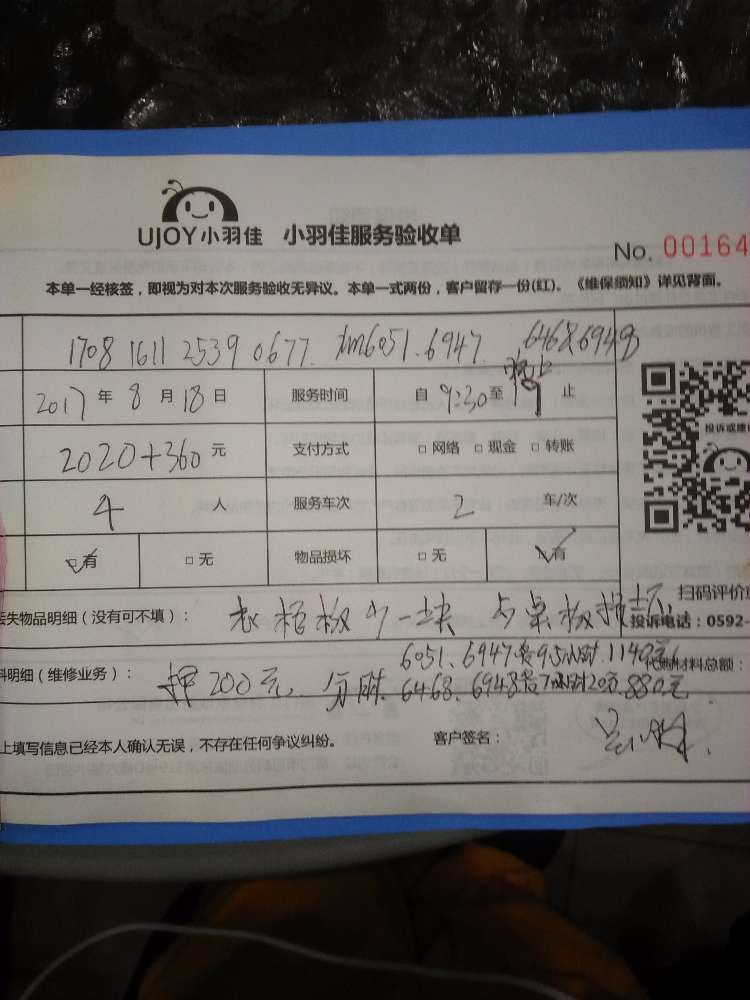 UJOY小羽佳 小羽佳服务验收单
No. 00164
本单一经核签，即视为对本次服务验收无异议。本单一式两份，客户留存一份(红)。《维保须知》详见背面。
1708 1611 2539 0677. 6051.6947. 6468.6948
2017 年 8 月 18 日 服务时间 自 9:30 至 止
2020+360 元 支付方式 □ 网络 □ 现金 □ 转账
投诉或建议
4 人 服务车次 2 车/次
□ 有 □ 无 物品损坏 □ 无 □ 有
扫码评价
丢失物品明细（没有可不填）： 少一块 板损坏
投诉电话：0592-
6051、6947 9.5小时.1140元
料明细（维修业务）： 押200元 代购材料总额：
6468、6948 7小时 880元
上填写信息已经本人确认无误，不存在任何争议纠纷。 客户签名：